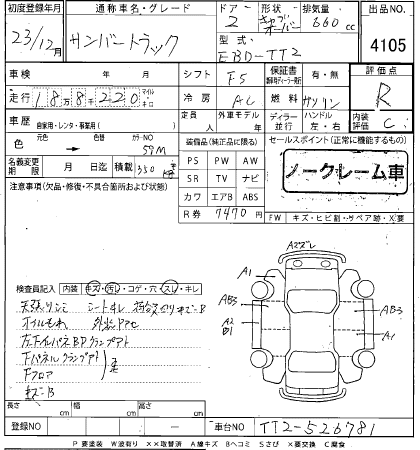 初度登録年月 通称車名・グレード ドア 形状 排気量 出品NO
23/12月 サンバートラック 2 キャブオーバー 660cc 4105
型式 EBD-TT2
車検 年 月 シフト F5 保証書 有・無 評価点 R
走行 18万8千220 マイル・キロ 冷房 AC 燃料 ガソリン
定員 人 外車モデル 年 ディーラー 並行 ハンドル 左・右 内装評価 C
車歴 自家用・レンタ・事業用( )
色 元色 → 色替 カラーNO 51M
名義変更期限 月 日迄 積載 350kg
装備品(純正品に限る)
PS PW AW
SR TV ナビ
カワ エアB ABS
R券 7470円
セールスポイント(正常に機能するもの)
ノークレーム車
FW キズ・ヒビ割・リペア跡・X要
注意事項(欠品・修復・不具合箇所および状態)
検査員記入 内装 キズ・汚レ・コゲ・穴・スレ・キレ
天張りシミ シートキレ
オイルもれ
Fパネルクランプアト
Fフロア
A2ズレ
A1
AB3
A2
B1
AB3
A1
A1
長さ cm 幅 cm 高さ cm
登録NO — 車台NO TT2-526781
P要塗装 W波有り XX取替済 A線キズ Bヘコミ Sさび X要交換 C腐食